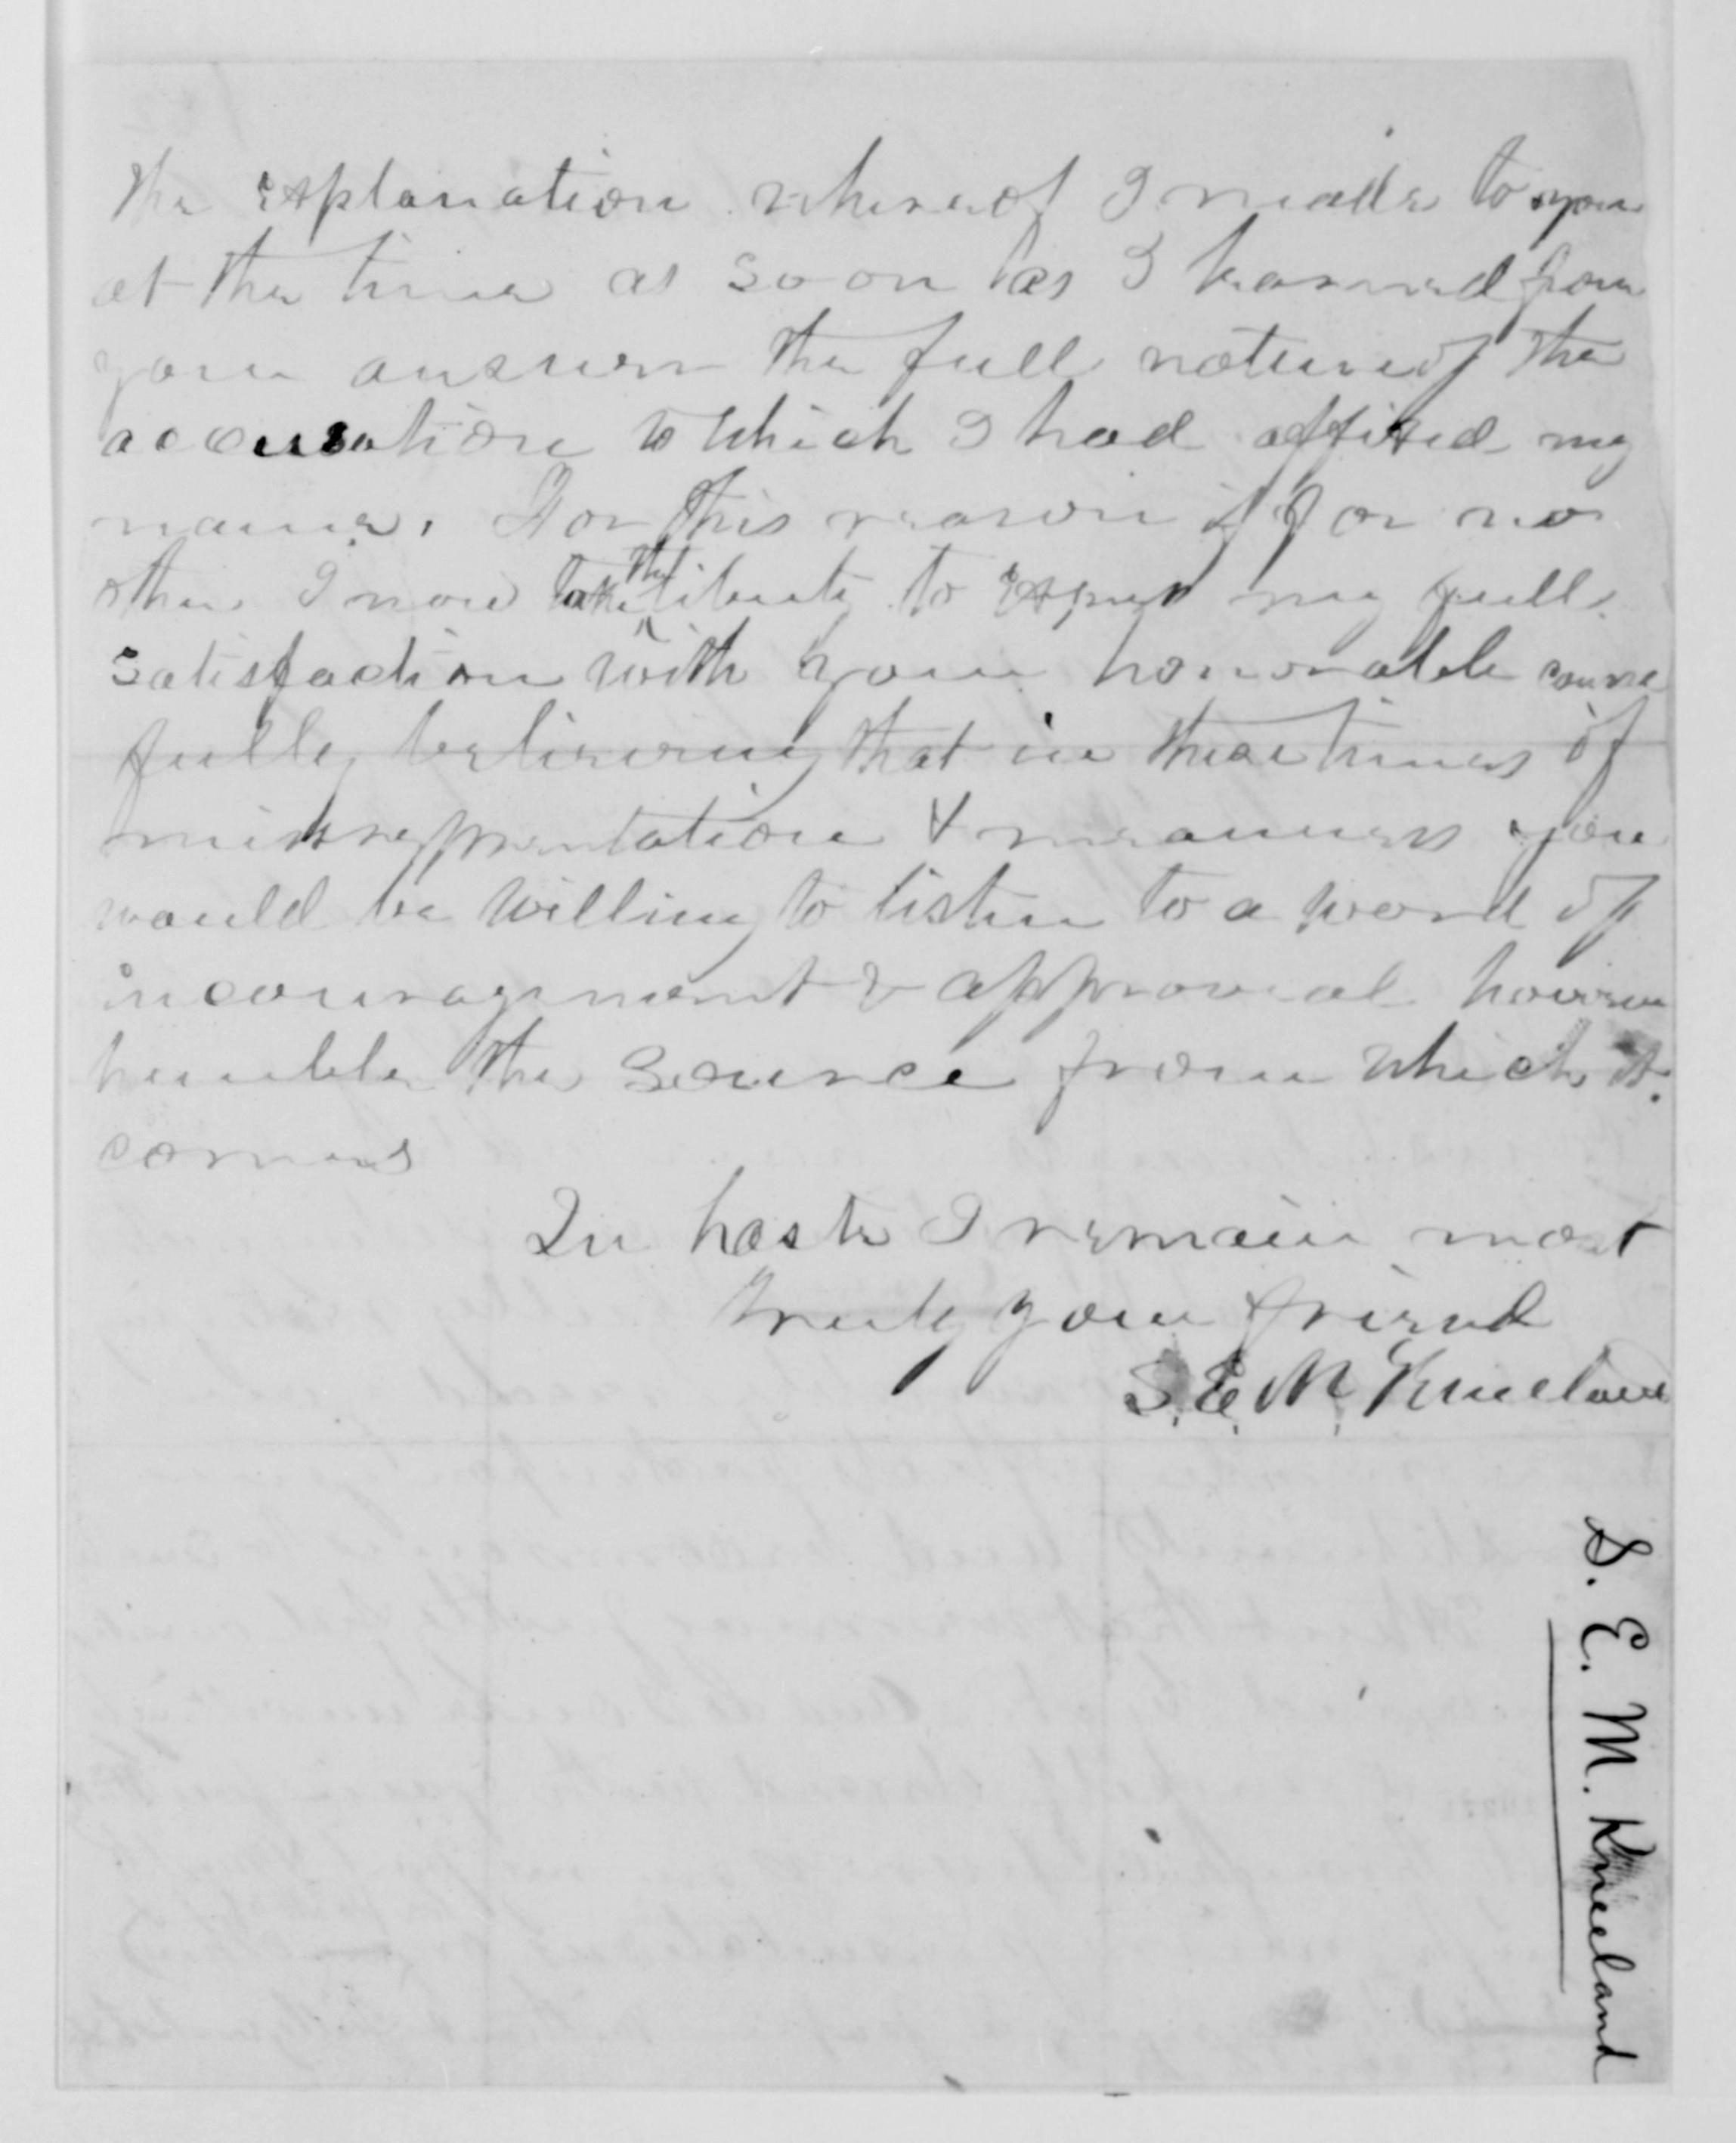 The explanation whereof I made to you
at the time as soon as I learned from
your answer the full nature of the
accusation to which I had affixed my
name. For this reason if for no
other I now take the liberty to express my full
satisfaction with your honorable course
fully believing that in these times of
missrepresentation & meanness you
would be willing to listen to a word of
incouragement & approval however
humble the source from which it
comes
In haste I remain most
truly your friend
S. E. M. Kneeland
S. E. M. Kneeland